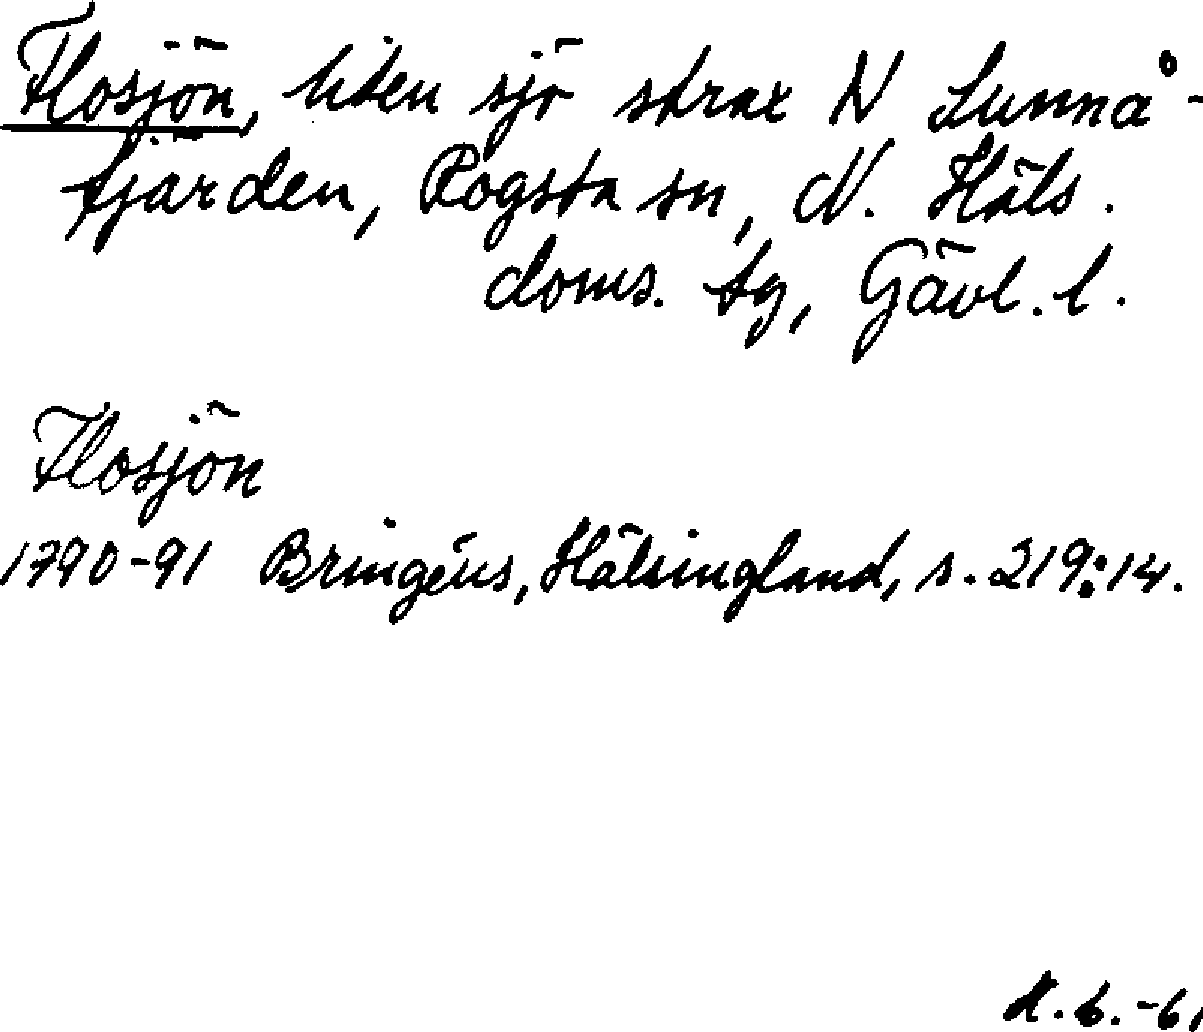 Flosjön, liten sjö strax N Sunnå-
fjärden, Rogsta sn, N. Häls.
doms. tg, Gävl. l.
Flosjön
1790-91 Bringéus, Hälsingland, s. 219:14.